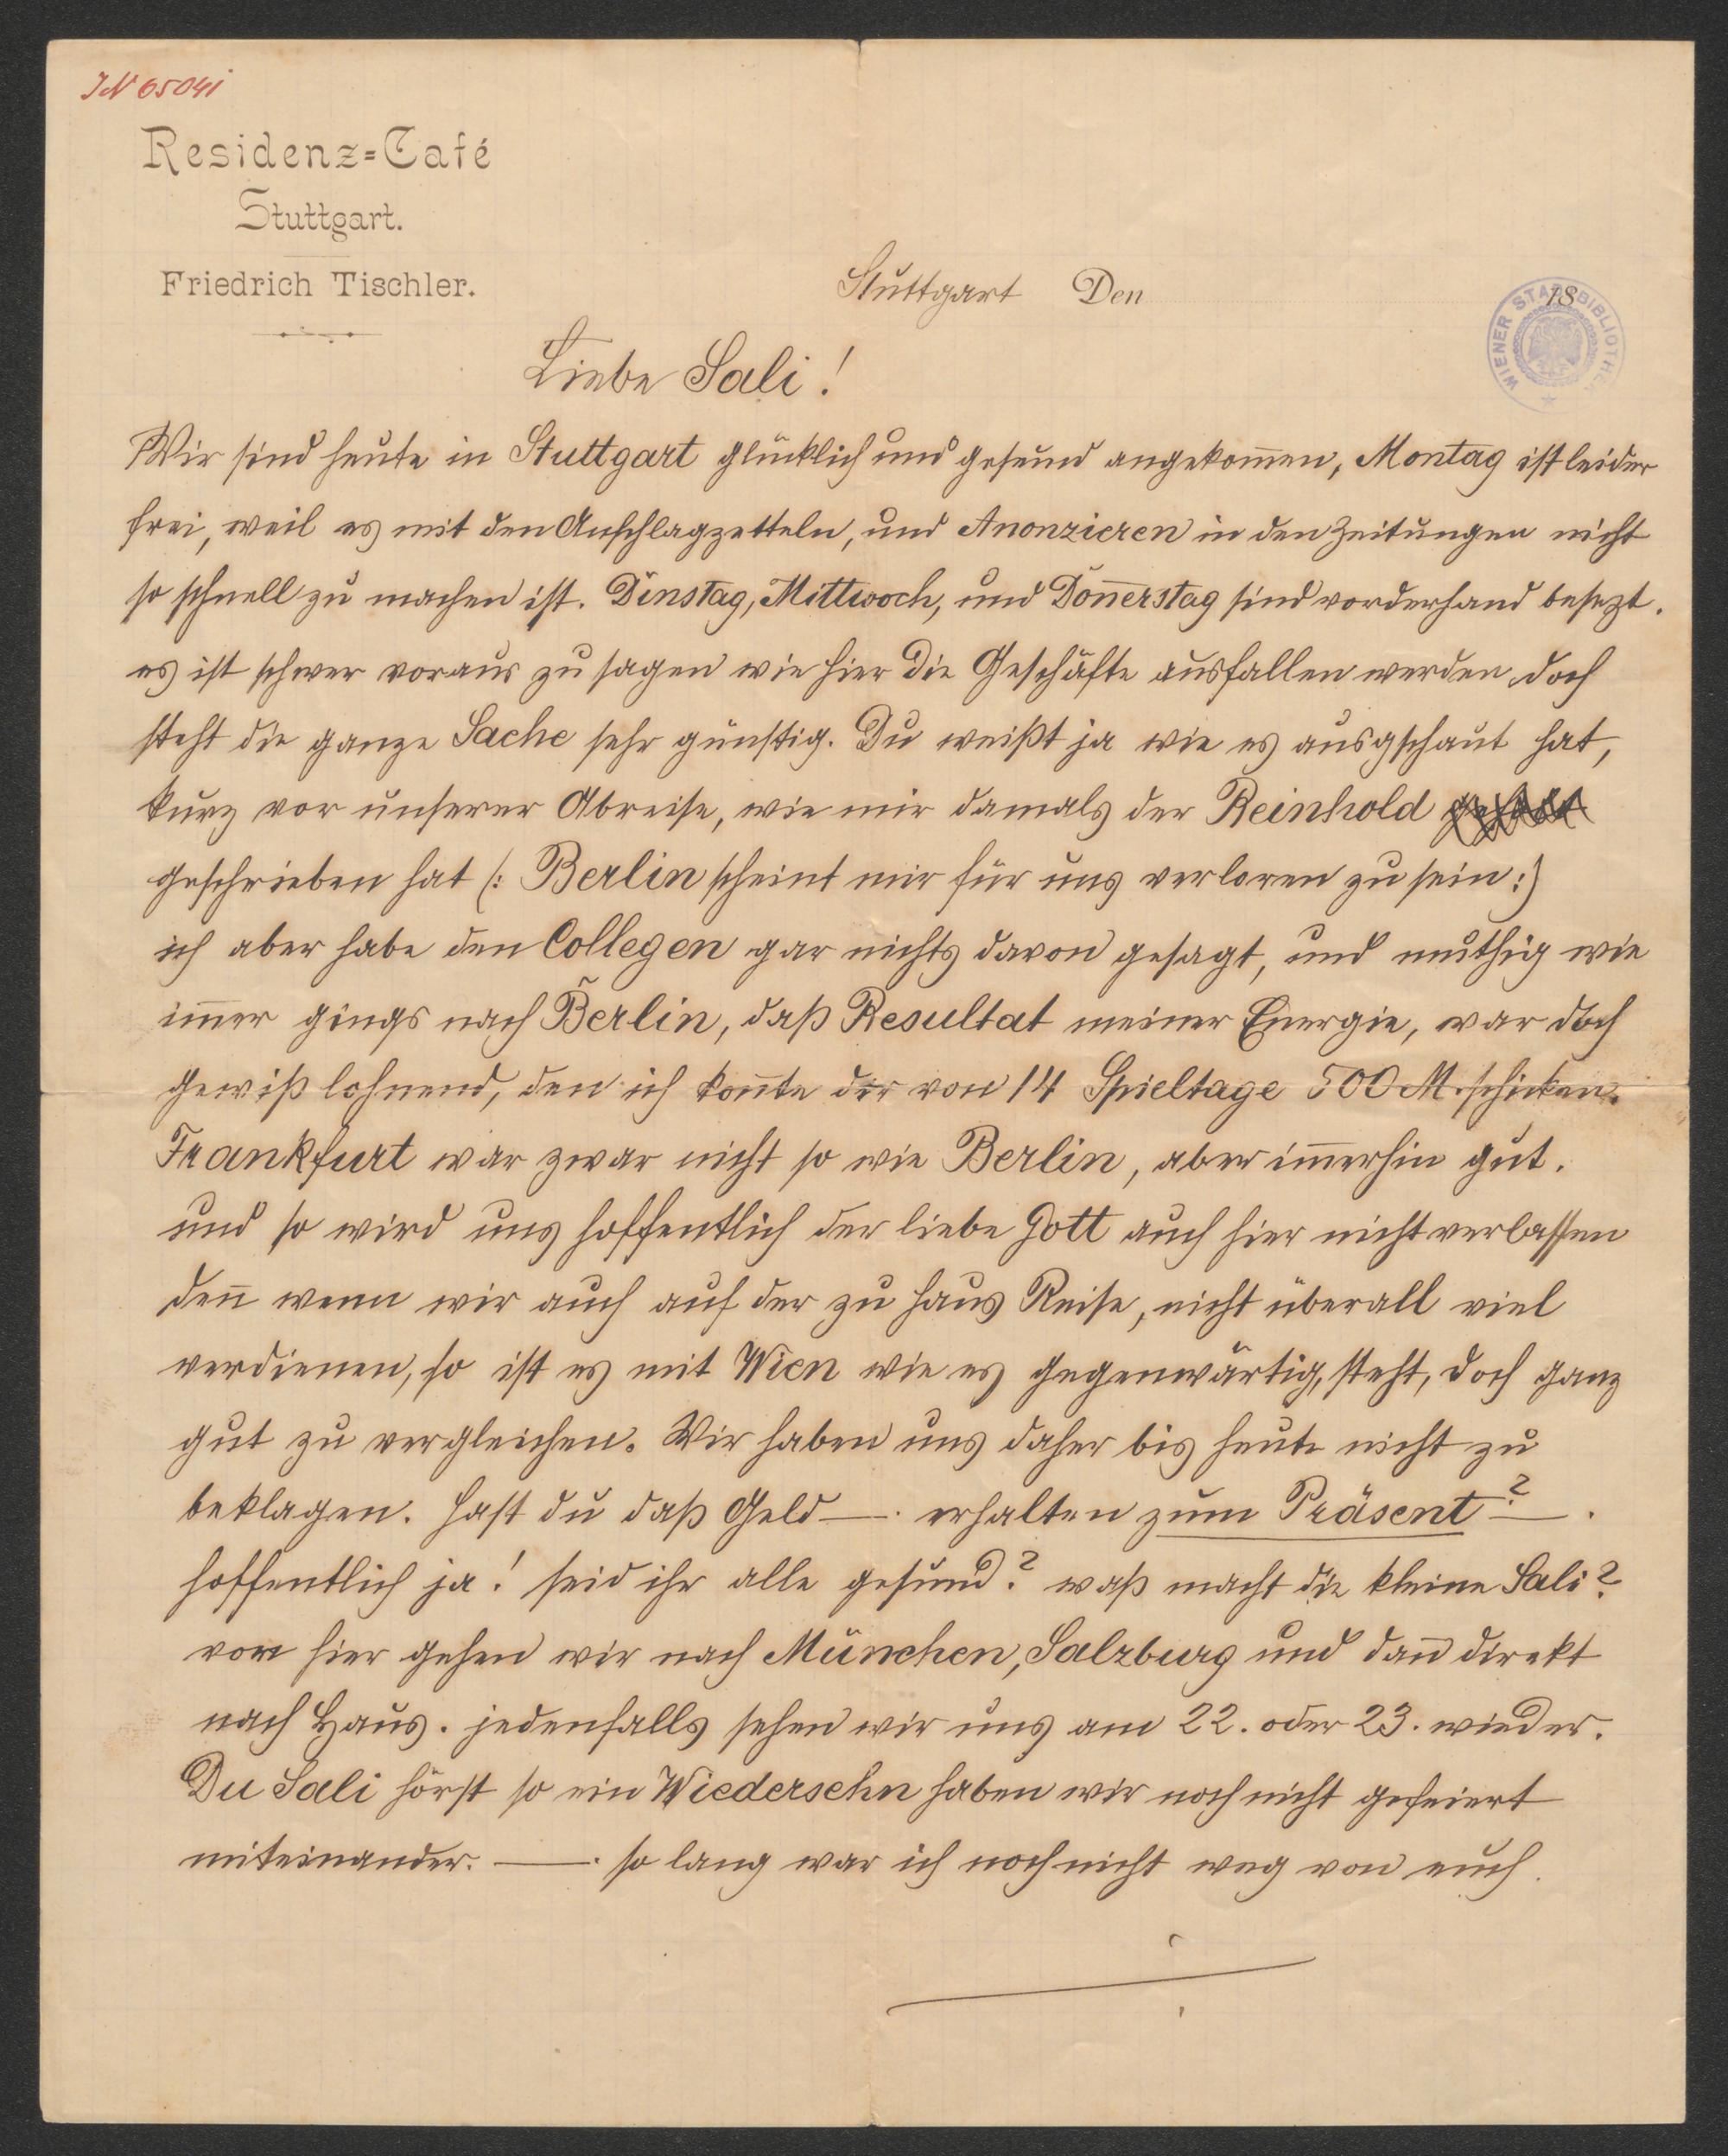 IN 65041
Residenz=Café
Stuttgart.
Friedrich Tischler.
Stuttgart Den 18
WIENER STADTBIBLIOTHEK
Liebe Sali!
Wir sind heute in Stuttgart glücklich und gesund angekom̅en, Montag ist leider
frei, weil es mit den Anschlagzetteln, und Anonzieren in den Zeitungen nicht
so schnell zu machen ist. Dinstag, Mittwoch, und Don̅erstag sind vorderhand besezt.
es ist schwer voraus zu sagen wie hier die Geschäfte ausfallen werden doch
steht die ganze Sache sehr günstig. Du weißt ja wie es ausgschaut hat,
kurz vor unserer Abreise, wie mir damals der Reinhold
geschrieben hat (: Berlin scheint mir für uns verloren zu sein :)
ich aber habe den Collegen gar nichts davon gesagt, und muthig wie
im̅er gings nach Berlin, daß Resultat meiner Energie, war doch
gewiß lohnend, den ich kon̅te dir von 14 Spieltage 500 M. schicken.
Frankfurt war zwar nicht so wie Berlin, aber im̅erhin gut.
und so wird uns hoffentlich der liebe Gott auch hier nicht verlassen
den̅ wenn wir auch auf der zu Haus Reise, nicht überall viel
verdienen, so ist es mit Wien wie es gegenwärtig, steht, doch ganz
gut zu vergleichen. Wir haben uns daher bis heute nicht zu
beklagen. Hast du daß Geld —. erhalten zum Präsent? —.
hoffentlich ja! seid ihr alle gesund? waß macht die kleine Sali?
von hier gehen wir nach München, Salzburg und dan̅ direkt
nach Haus. jedenfalls sehen wir uns am 22. oder 23. wieder.
Du Sali hörst so ein Wiedersehn haben wir noch nicht gefeiert
miteinander. —. so lang war ich noch nicht weg von euch.